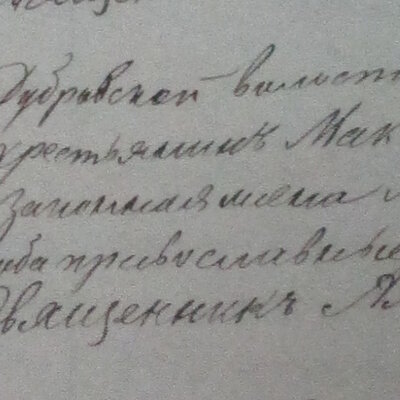 Дубровской волост
крестьянинъ Мак
законная жена
оба православные
Священникъ Ал